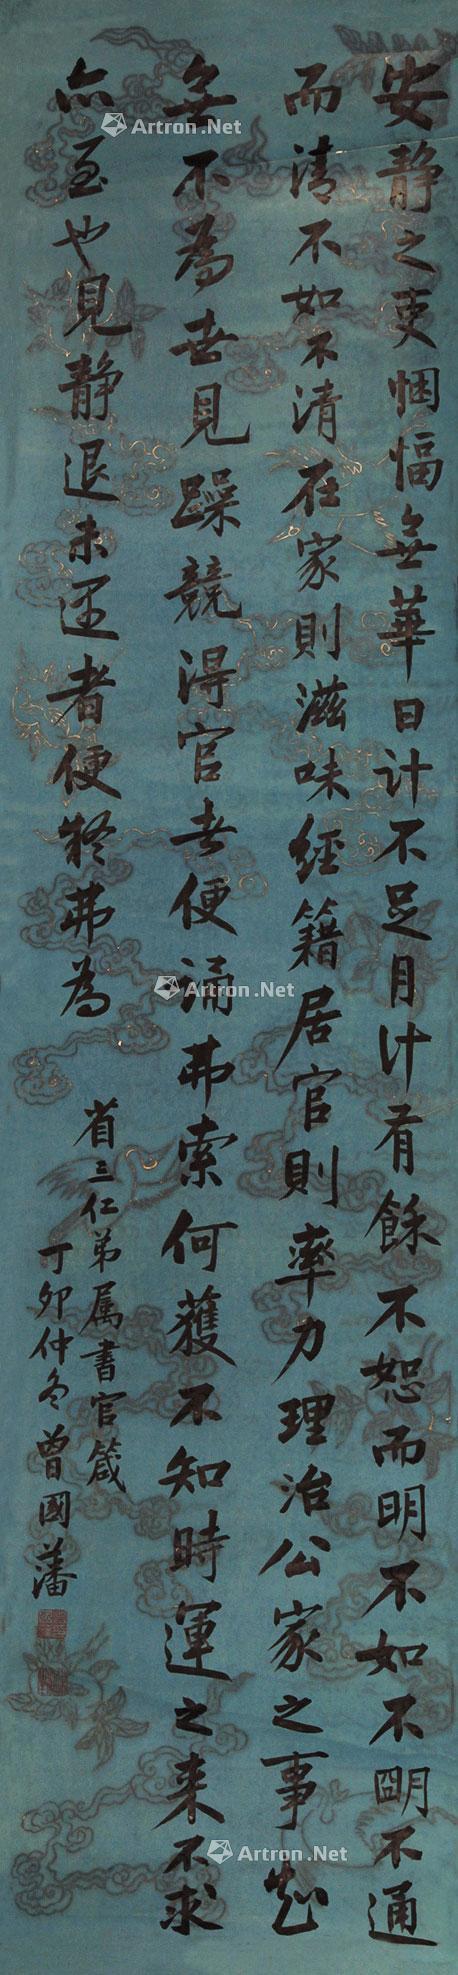 安静之吏悃愊無華日计不足月计有餘不恕而明不如不朙不通
而清不如不清在家則滋味經籍居官則率力理治公家之事知
無不為世見躁競得官者便誦弗索何獲不知時運之来不求
亦至也見静退未遇者便疑弗為
省三仁弟属書官箴
丁卯仲冬曾國藩
Artron.Net
Artron.Net
Artron.Net
Artron.Net